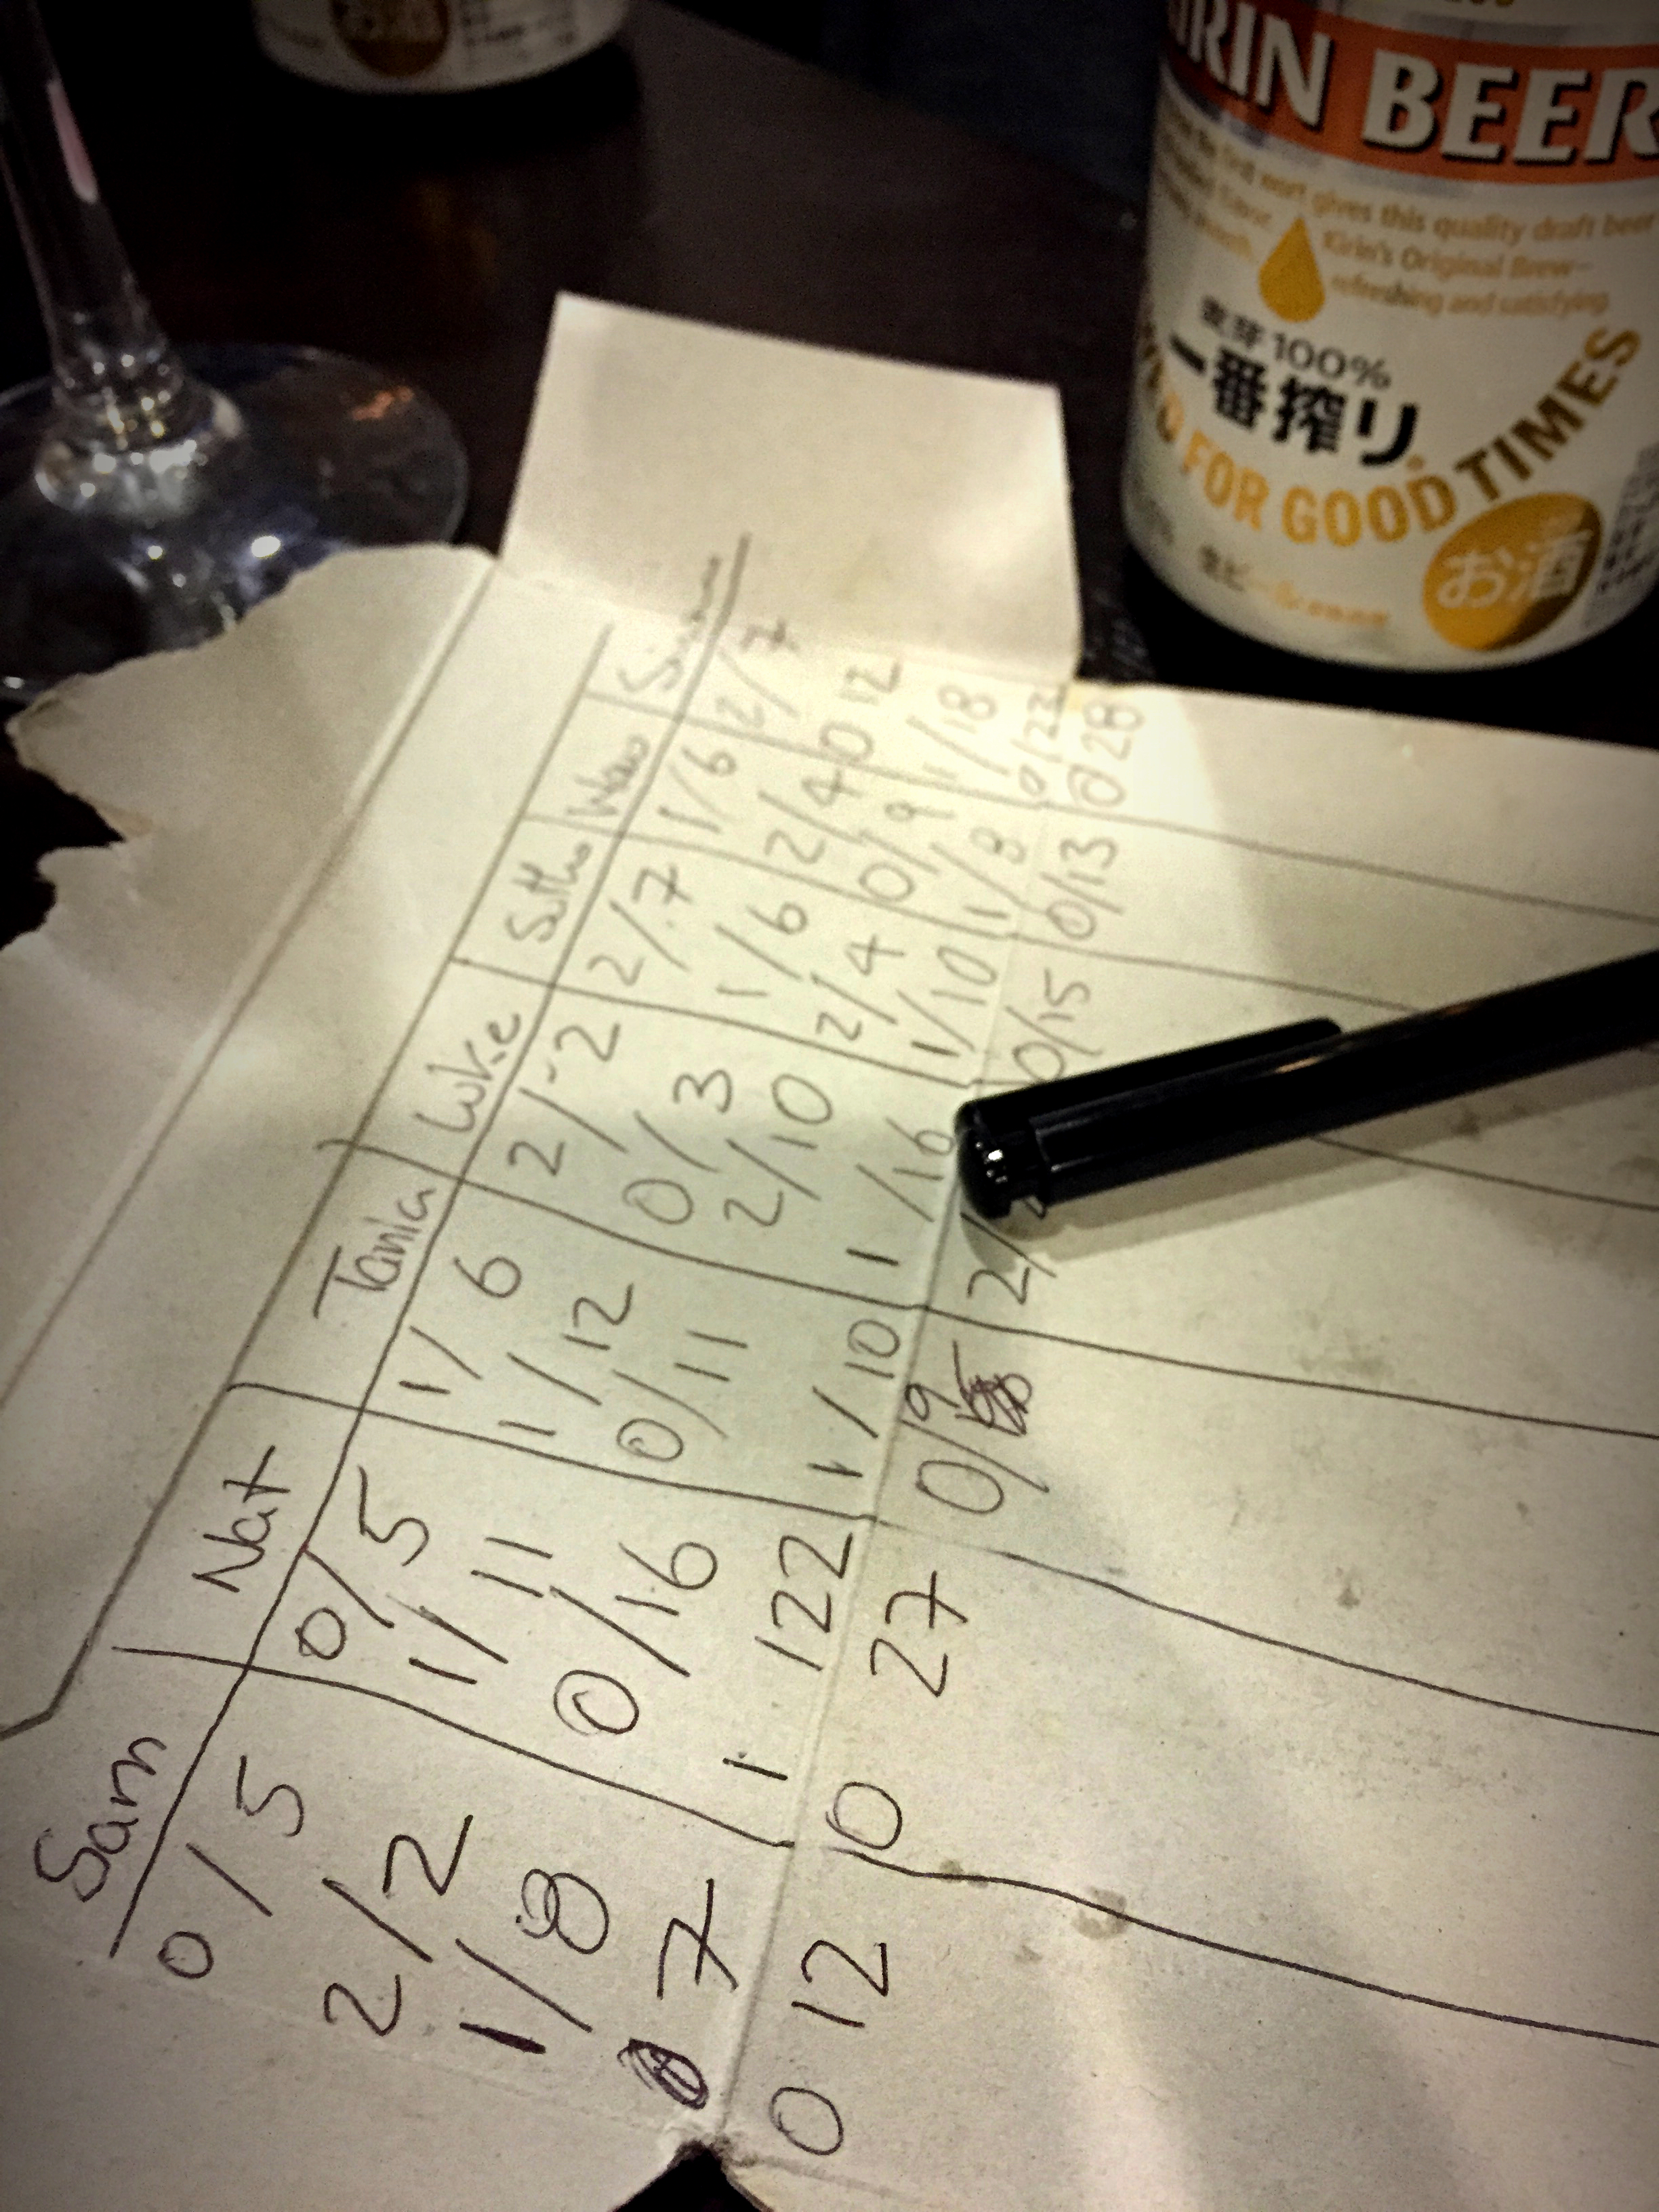 Sam Nat Tania Luke
0/5 0/5 1/6 2/-2 2/7 1/6 2/7
2/2 1/11 1/12 0/3 1/6 2/4 0 12
1/8 0/16 0/11 2/10 2/4 0/9 1/18
7 1 22 1/10 1/16 1/10 1/8 0/22
0 12 0 27 0/9 2/ 0/15 0/13 0 28
KIRIN BEER
wort gives this quality draft beer
Kirin's Original Brew–
refreshing and satisfying
麦芽100%
一番搾り
FOR GOOD TIMES
お酒